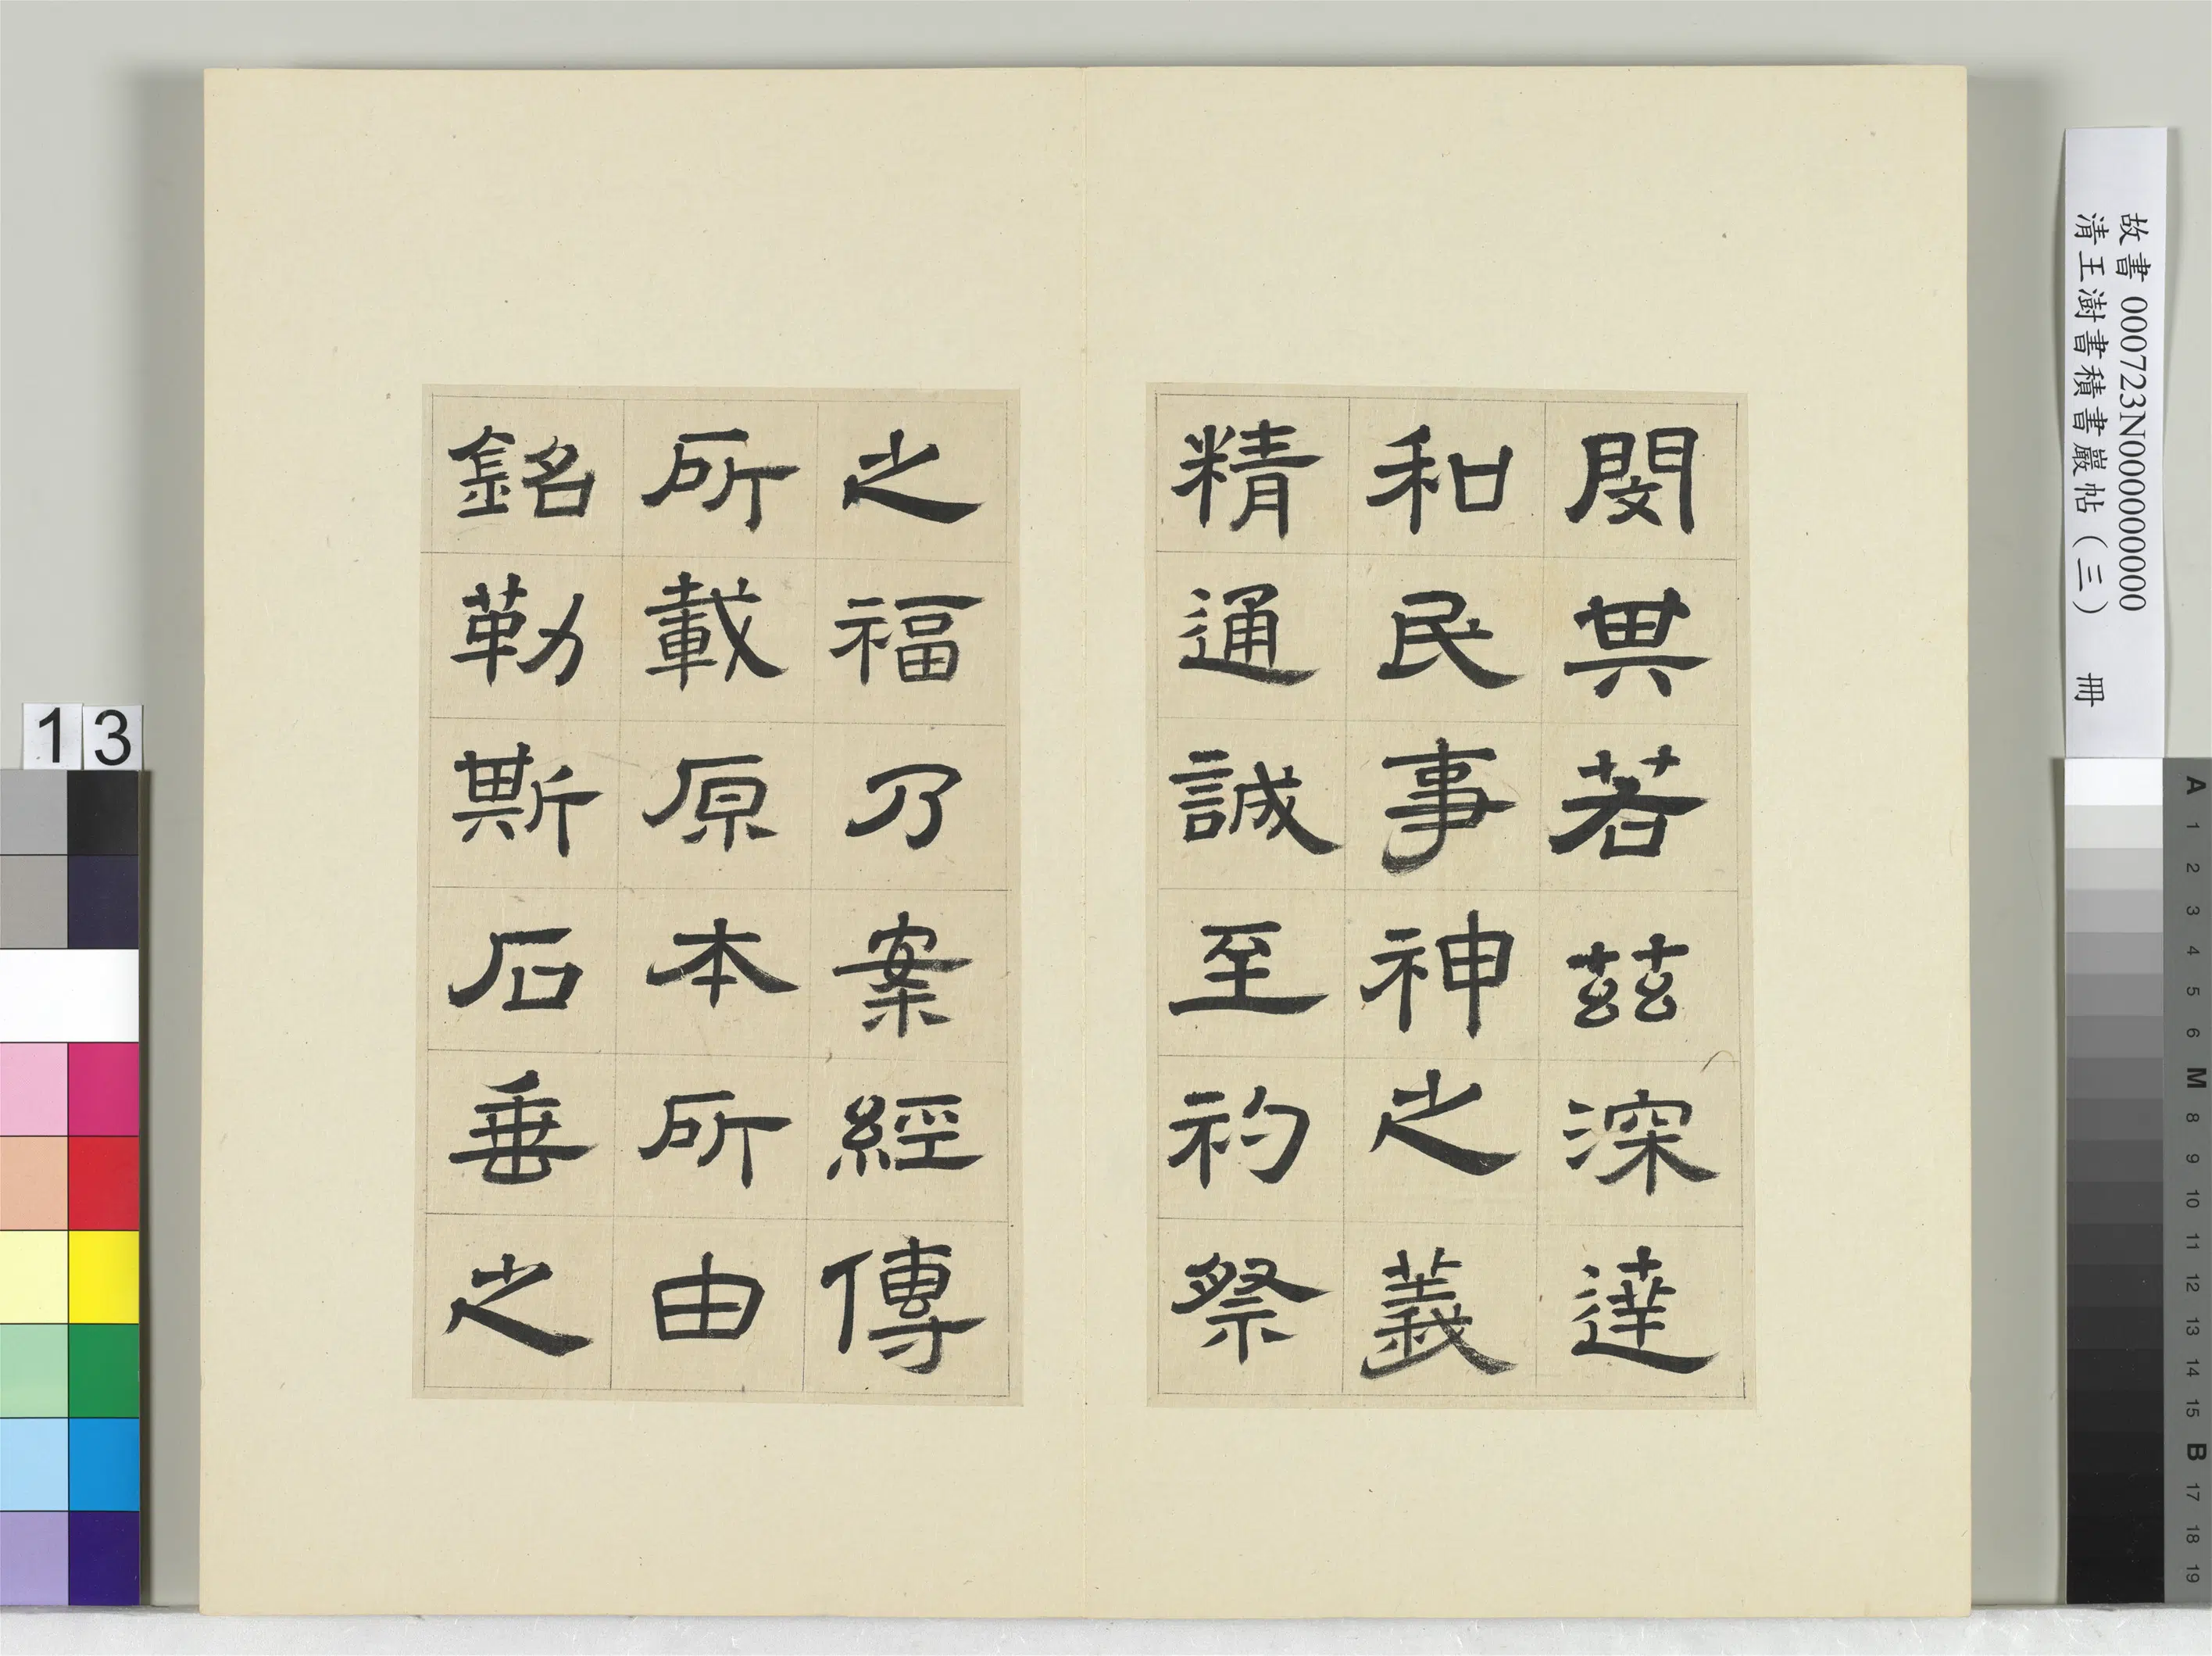 閔其若茲深達
和民事神之義
精通誠至礿祭
之福乃案經傳
所載原本所由
銘勒斯石垂之
故書 000723N000000000
清王澍書積書巖帖（三） 冊
13
A 1 2 3 4 5 6 M 8 9 10 11 12 13 14 15 B 17 18 19